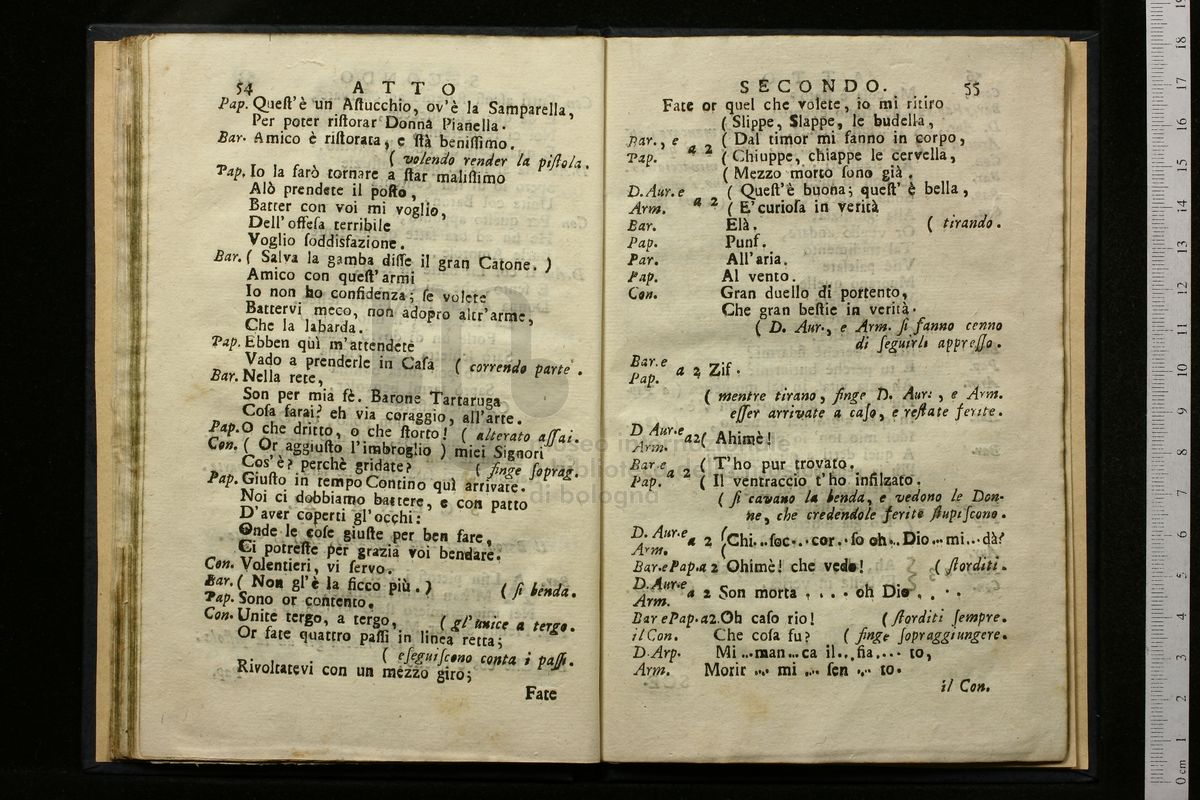 54 ATTO
Pap. Queſt'è un Aſtucchio, ov'è la Samparella,
Per poter riſtorar Donna Pianella.
Bar. Amico è riſtorata, e ſtà beniſſimo.
( volendo render la piſtola.
Pap. Io la farò tornare a ſtar maliſſimo
Alò prendete il poſto,
Batter con voi mi voglio,
Dell'offeſa terribile
Voglio ſoddisfazione.
Bar. ( Salva la gamba diſſe il gran Catone. )
Amico con queſt'armi
Io non ho confidenza; ſe volete
Battervi meco, non adopro altr'arme,
Che la labarda.
Pap. Ebben quì m'attendete
Vado a prenderle in Caſa ( correndo parte.
Bar. Nella rete,
Son per mia fè. Barone Tartaruga
Coſa farai? eh via coraggio, all'arte.
Pap. O che dritto, o che ſtorto! ( alterato aſſai.
Con. ( Or aggiuſto l'imbroglio ) miei Signori
Cos'è? perchè gridate? ( finge ſoprag.
Pap. Giuſto in tempo Contino quì arrivate.
Noi ci dobbiamo battere, e con patto
D'aver coperti gl'occhi:
Onde le coſe giuſte per ben fare,
Ci potreſte per grazia voi bendare.
Con. Volentieri, vi ſervo.
Bar. ( Non gl'è la ficco più. ) ( ſi benda.
Pap. Sono or contento.
Con. Unite tergo, a tergo, ( gl'unice a tergo.
Or fate quattro paſſi in linea retta;
( eſeguiſcono conta i paſſi.
Rivoltatevi con un mezzo giro;
Fate
SECONDO. 55
Fate or quel che volete, io mi ritiro
( Slippe, Slappe, le budella,
Bar., e a 2 ( Dal timor mi fanno in corpo,
Pap. ( Chiuppe, chiappe le cervella,
( Mezzo morto ſono già.
D. Aur. e a 2 ( Queſt'è buona; queſt'è bella,
Arm. ( E'curioſa in verità
Bar. Elà. ( tirando.
Pap. Punf.
Par. All'aria.
Pap. Al vento.
Con. Gran duello di portento,
Che gran beſtie in verità.
( D. Aur., e Arm. ſi fanno cenno
di ſeguirli appreſſo.
Bar. e a 2 Zif.
Pap.
( mentre tirano, finge D. Aur., e Arm.
eſſer arrivate a caſo, e reſtate ferite.
D Aur. e a2 ( Ahimè!
Arm.
Bar e a 2 ( T'ho pur trovato.
Pap. ( Il ventraccio t'ho infilzato.
( ſi cavano la benda, e vedono le Don-
ne, che credendole ferite ſtupiſcono.
D. Aur. e a 2 ( Chi...ſoc...cor.ſo oh..Dio...mi...dà?
Arm. (
Bar. e Pap. a 2 Ohimè! che vedo! ( ſtorditi.
D. Aur. e a 2 Son morta .... oh Dio ....
Arm.
Bar e Pap. a2. Oh caſo rio! ( ſtorditi ſempre.
il Con. Che coſa fu? ( finge ſopraggiungere.
D. Arp. Mi...man...ca il...fia.... to,
Arm. Morir ... mi ... ſen ... to.
il Con.